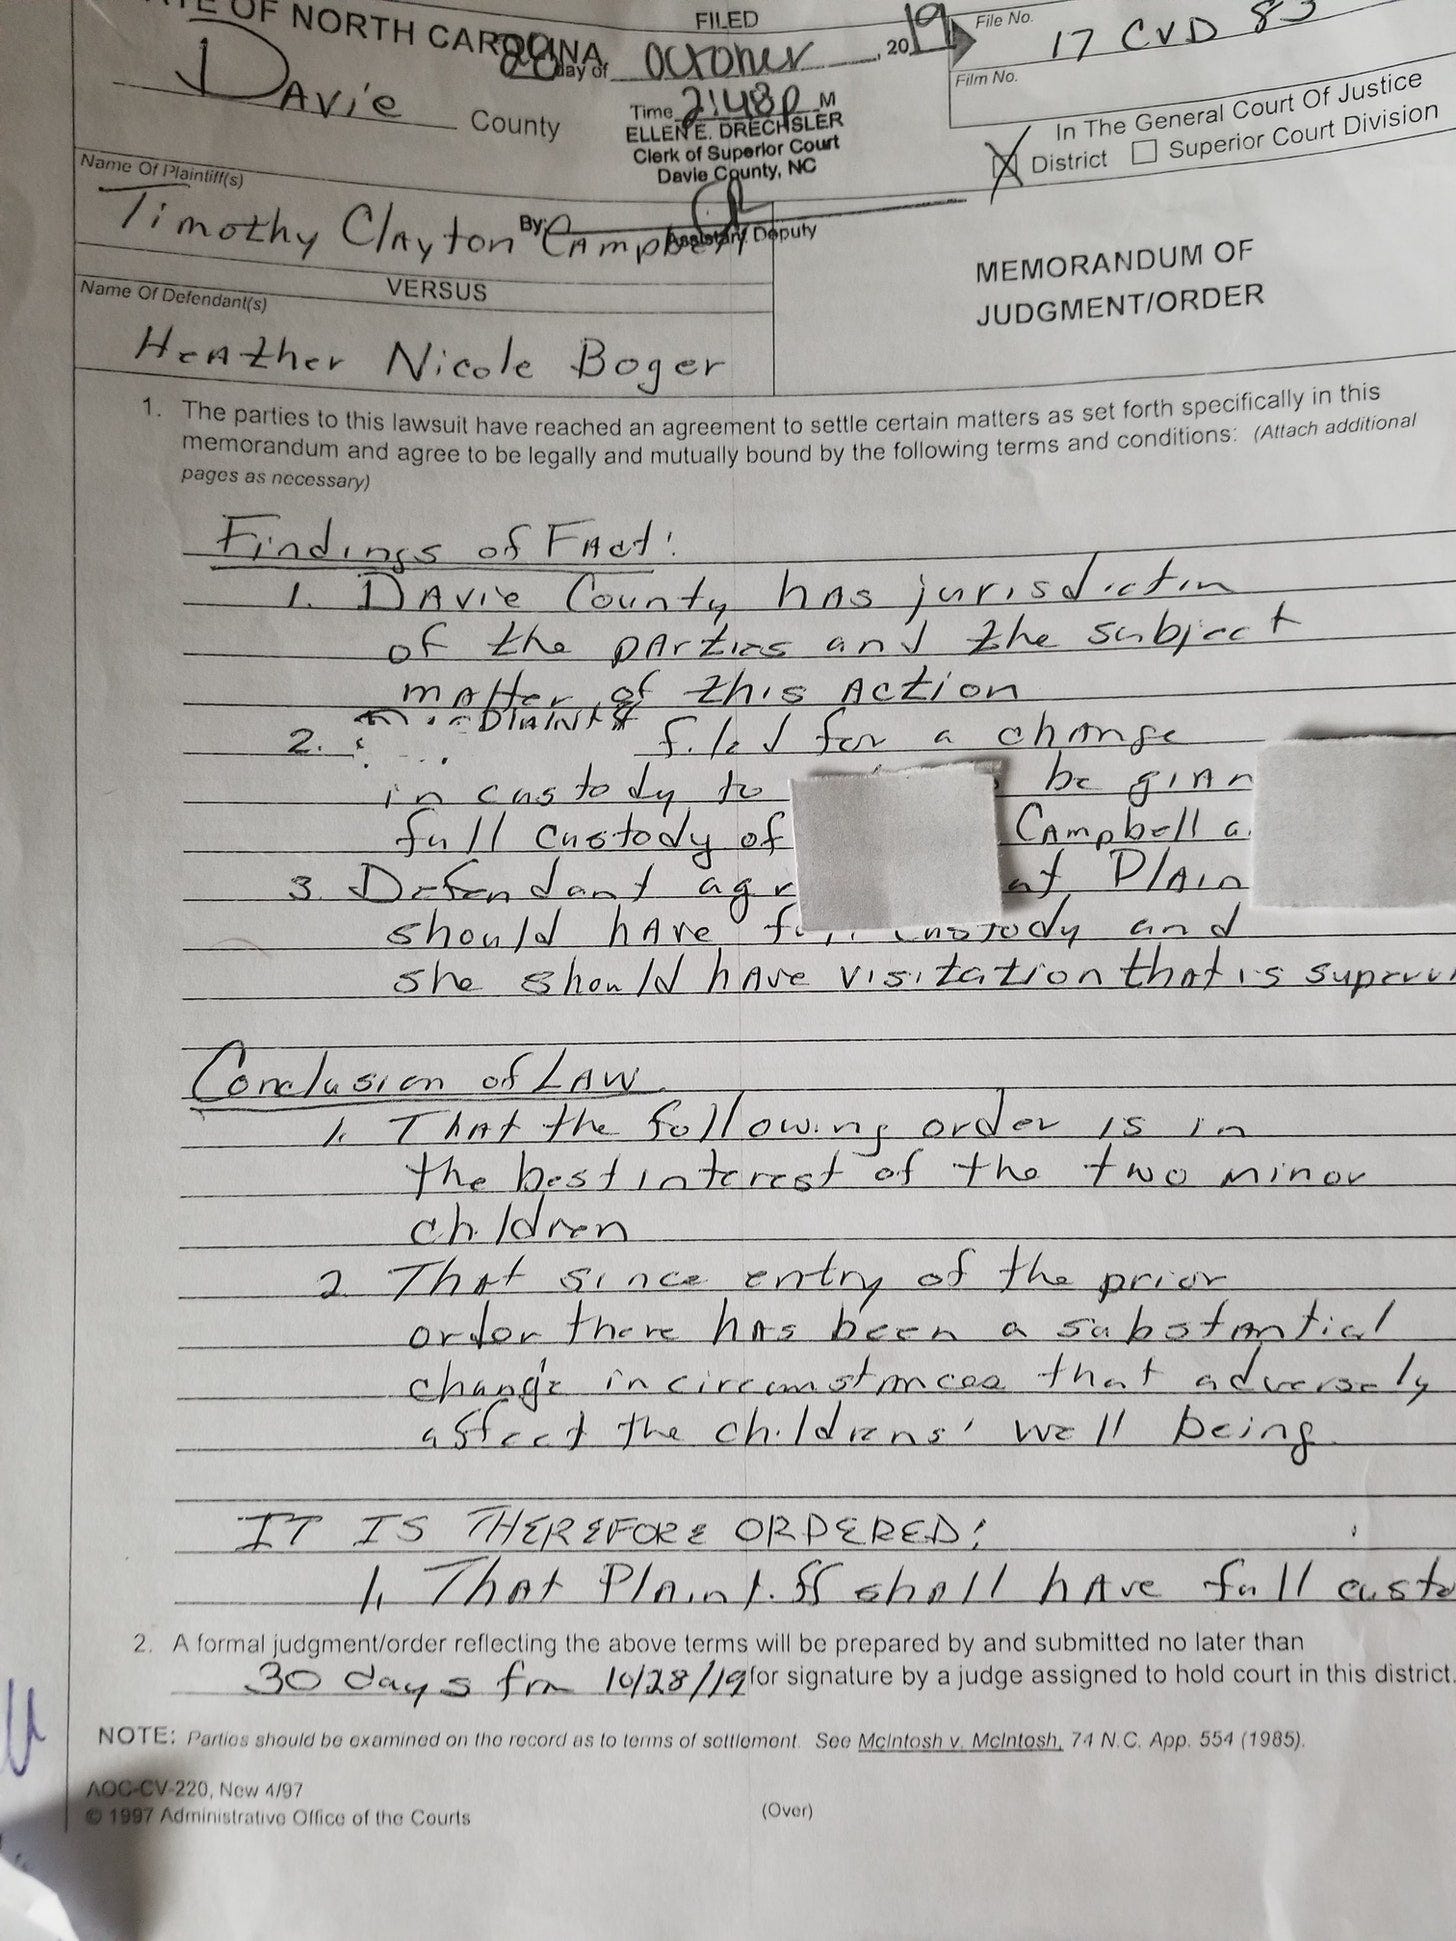 OF NORTH CAROLINA
FILED
File No.
17 CVD 83
28 day of October, 2019
Film No.
Davie County
Time 2:48p M
ELLEN E. DRECHSLER
Clerk of Superior Court
Davie County, NC
In The General Court Of Justice
District Superior Court Division
Name Of Plaintiff(s)
Timothy Clayton Campbell
By:
Assistant/Deputy
VERSUS
Name Of Defendant(s)
Heather Nicole Boger
MEMORANDUM OF
JUDGMENT/ORDER
1. The parties to this lawsuit have reached an agreement to settle certain matters as set forth specifically in this
memorandum and agree to be legally and mutually bound by the following terms and conditions: (Attach additional
pages as necessary)
Findings of Fact:
1. Davie County has jurisdictin
of the parties and the subject
matter of this Action
2. filed for a change
in custody to be
full custody of Campbell
3. Defendant
should have custody and
she should have visitation that is
Conclusion of Law
1. That the following order is in
the best interest of the two minor
children
2. That since entry of the prior
order there has been a substantial
change in circumstances that adversely
affect the childrens' well being
IT IS THEREFORE ORDERED:
1. That Plaintiff shall have full
2. A formal judgment/order reflecting the above terms will be prepared by and submitted no later than
30 days frm 10/28/19 for signature by a judge assigned to hold court in this district.
NOTE: Parties should be examined on the record as to terms of settlement. See McIntosh v. McIntosh, 74 N.C. App. 554 (1985).
AOC-CV-220, New 4/97
© 1997 Administrative Office of the Courts
(Over)